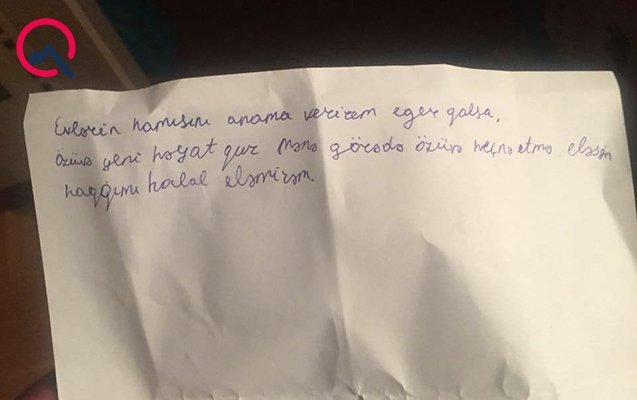 Evlərin hamısını anama verirəm eger qalsa,
özüvə yeni həyat qur mənə görədə özüvə heçnə etmə eləsən
haqqımı halal eləmirəm.